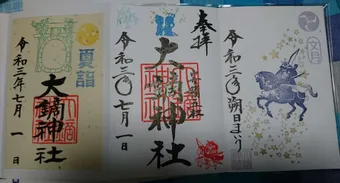 文月
令和三〇朔日まいり
奉拝
大鏑神社
令和三〇七月一日
夏詣
大鏑神社
令和三年七月一日